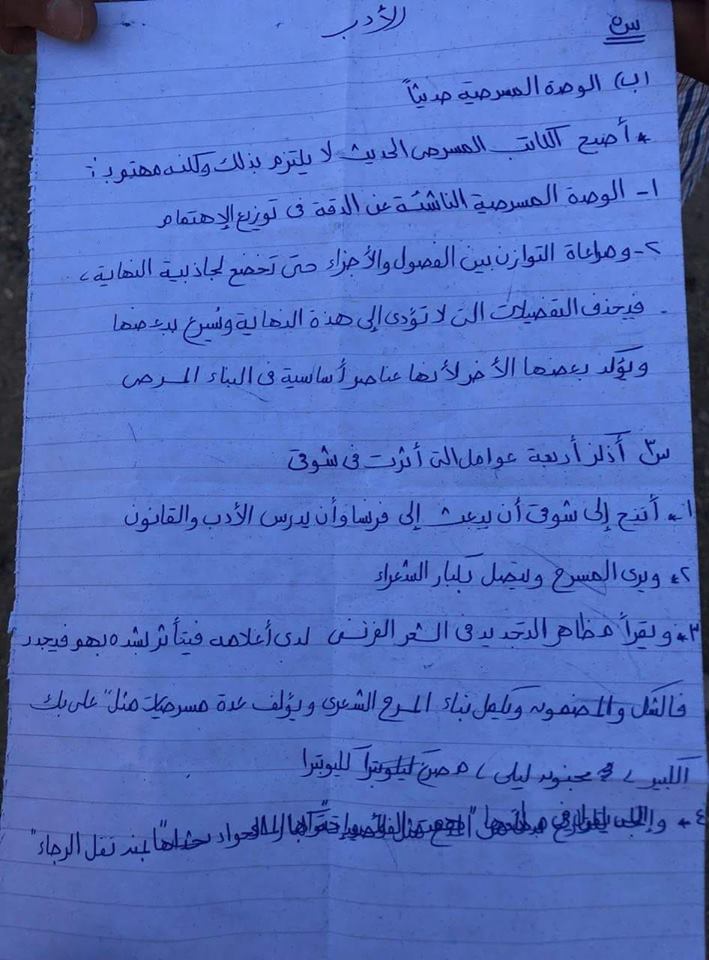 الأدب
س٥
(ب) الوحدة المسرحية حديثاً
* أصبح الكاتب المسرحى الحديث لا يلتزم بذلك ولكنه مهتم بـ:
١- الوحدة المسرحية الناشئة عن الدقة فى توزيع الإهتمام
٢- ومراعاة التوازن بين الفصول والأجزاء حتى تخضع لجاذبية النهاية ،
فيحذف التفصيلات التى لا تؤدى إلى هذه النهاية ويُسرع ببعضها
ويؤكد بعضها الأخر لأنها عناصر أساسية فى البناء المسرحى
س٣ أذكر أربعة عوامل التى أثرت فى شوقى
١* أتيح إلى شوقى أن يبعث إلى فرنسا وأن يدرس الأدب والقانون
٢* ويرى المسرح ويتصل بكبار الشعراء
٣* ويقرأ مظاهر التجديد فى الشعر الفرنسى لدى أعلامه فيتأثر بشده بهو فيجدد
فالشكل والمضمون ويكمل بناء المسرح الشعرى ويؤلف عدة مسرحيات مثل "على بك
الكبير ، مجنون ليلى ، مصرع كليوبترا
٤*